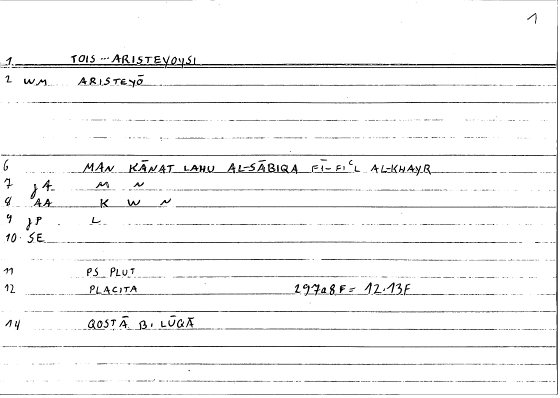 1
1 TOIS ... ARISTEYOYSI
2 WM ARISTEYŌ
6 MAN KĀNAT LAHU AL-SĀBIQA FĪ-FIᶜL AL-KHAYR
7 JA M N
8 AA K W N
9 JP L
10. SE
11 PS PLUT
12 PLACITA 297a8F = 12.13F
14 QOSTĀ B. LŪQĀ